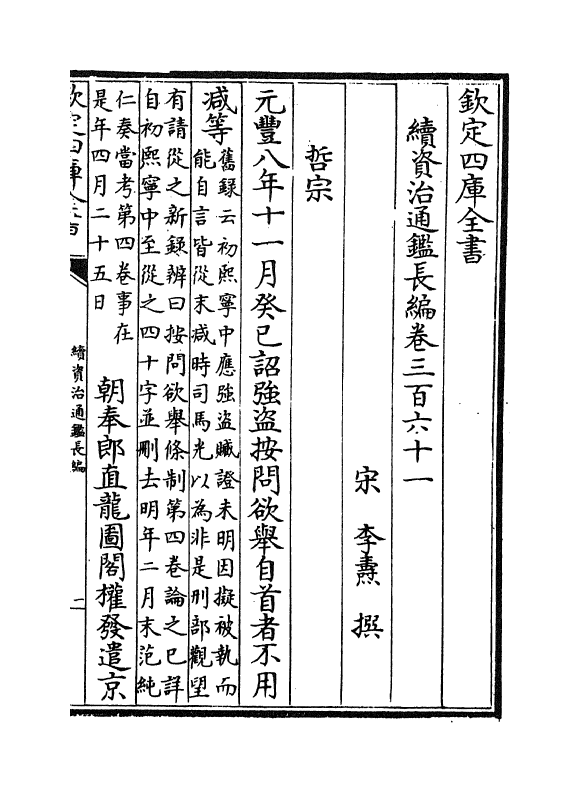 欽定四庫全書
續資治通鑑長編卷三百六十一
宋 李燾 撰
哲宗
元豐八年十一月癸巳詔強盗按問欲舉自首者不用
減等
舊錄云初熙寧中應強盗贓證未明因擬被執而
能自言皆從末减時司馬光以為非是刑部觀望
有請從之新録辨曰按問欲舉條制第四卷論之已詳
自初熙寧中至從之四十字並刪去明年二月末范純
仁奏當考第四卷事在
是年四月二十五日
朝奉郎直龍圖閣權發遣京
欽定四庫全書
續資治通鑑長編